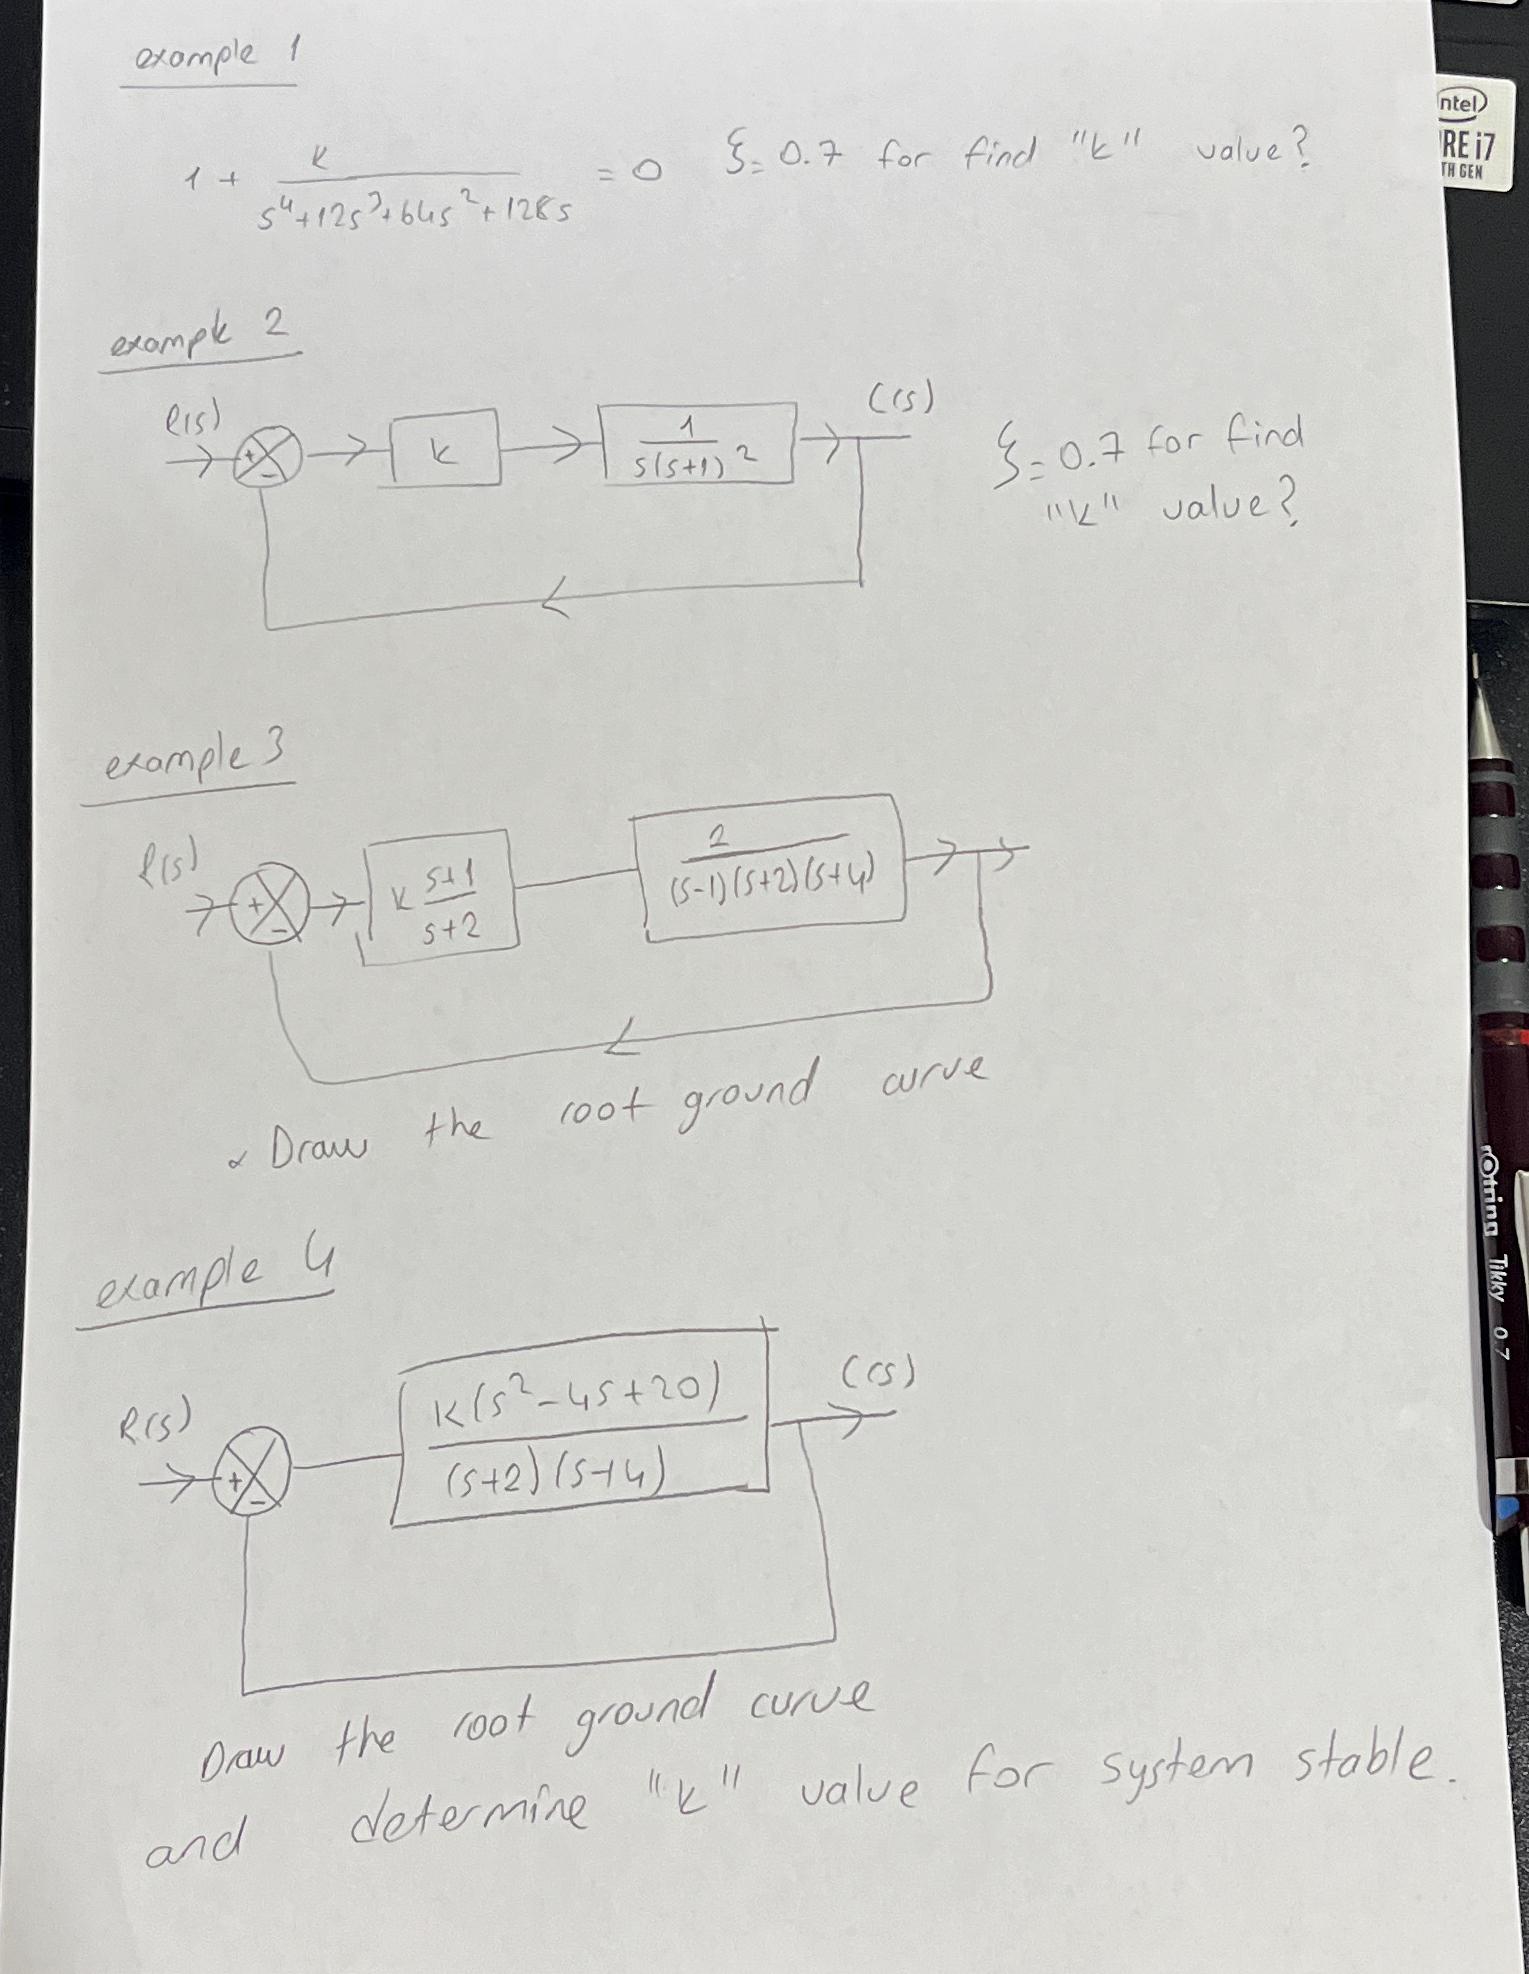 example 1
1 + k / (s⁴+12s³+64s²+128s) = 0 ξ=0.7 for find "k" value?
example 2
R(s) + - k 1 / s(s+1)² C(s)
ξ=0.7 for find
"k" value?
example 3
R(s) + - k (s+1) / (s+2) 2 / (s-1)(s+2)(s+4)
Draw the root ground curve
example 4
R(s) + - K(s²-4s+20) / (s+2)(s+4) C(s)
Draw the root ground curve
and determine "k" value for system stable.
intel
CORE i7
TH GEN
rOtring Tikky 0.7